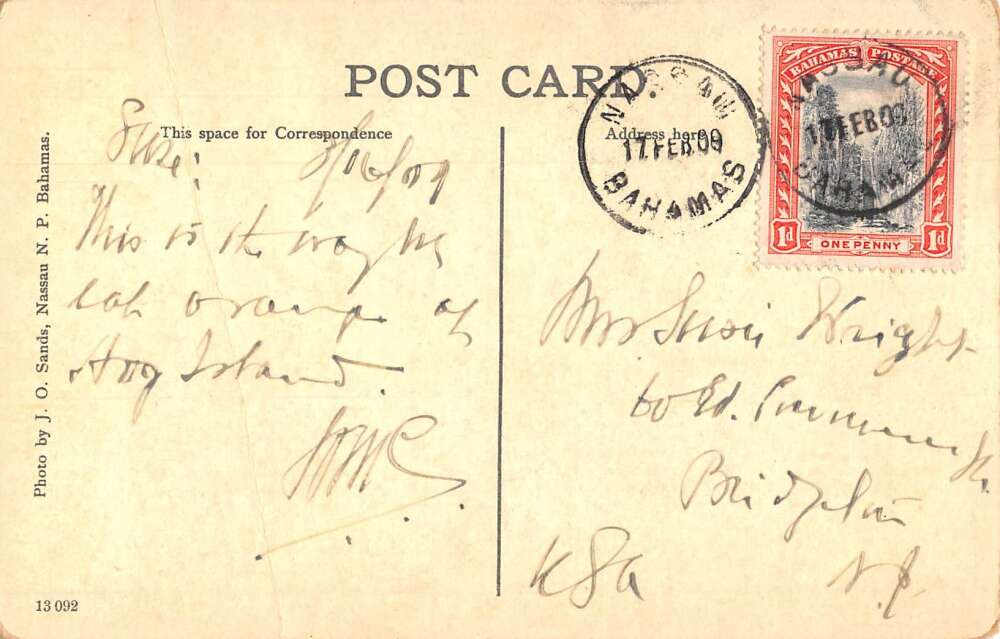 POST CARD
This space for Correspondence
Susie: 2/16/09
This is the way we
eat oranges at
Hog Island.
Address here
NASSAU
17 FEB 09
BAHAMAS
BAHAMAS POSTAGE
NASSAU
17 FEB 09
BAHAMAS
1d ONE PENNY 1d
Susie Wright
to Ed.
Bridgeton
N.J.
USA
Photo by J. O. Sands, Nassau N. P. Bahamas.
13 092